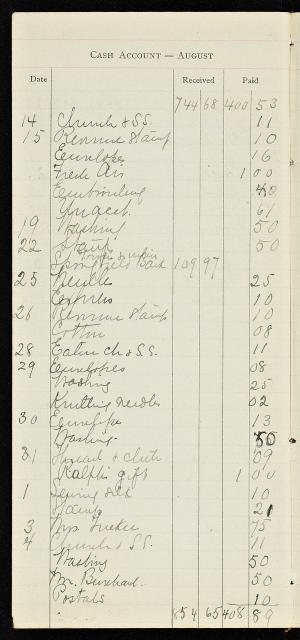 CASH ACCOUNT — AUGUST
Date Received Paid
744 68 400 53
14 Church & S.S. 11
15 Revenue Stamp 10
Envelopes 16
Fresh Air 1 00
Embroidery
61
19 Washing 50
22 50
Springfield Bank 109 97
25 Needles 25
Express 10
26 Revenue Stamp 10
Cotton 08
28 Eaton Ch & S.S. 11
29 Envelopes 08
Washing 25
Knitting Needles 02
30 Envelope 13
Washing 50
31 Thread & cloth 09
Ralph's gift 1 00
1 Sewing silk 10
Stamps 21
3 Mrs 75
4 Church & S.S. 11
Washing 50
Mr. 50
Postals 10
854 65 408 89